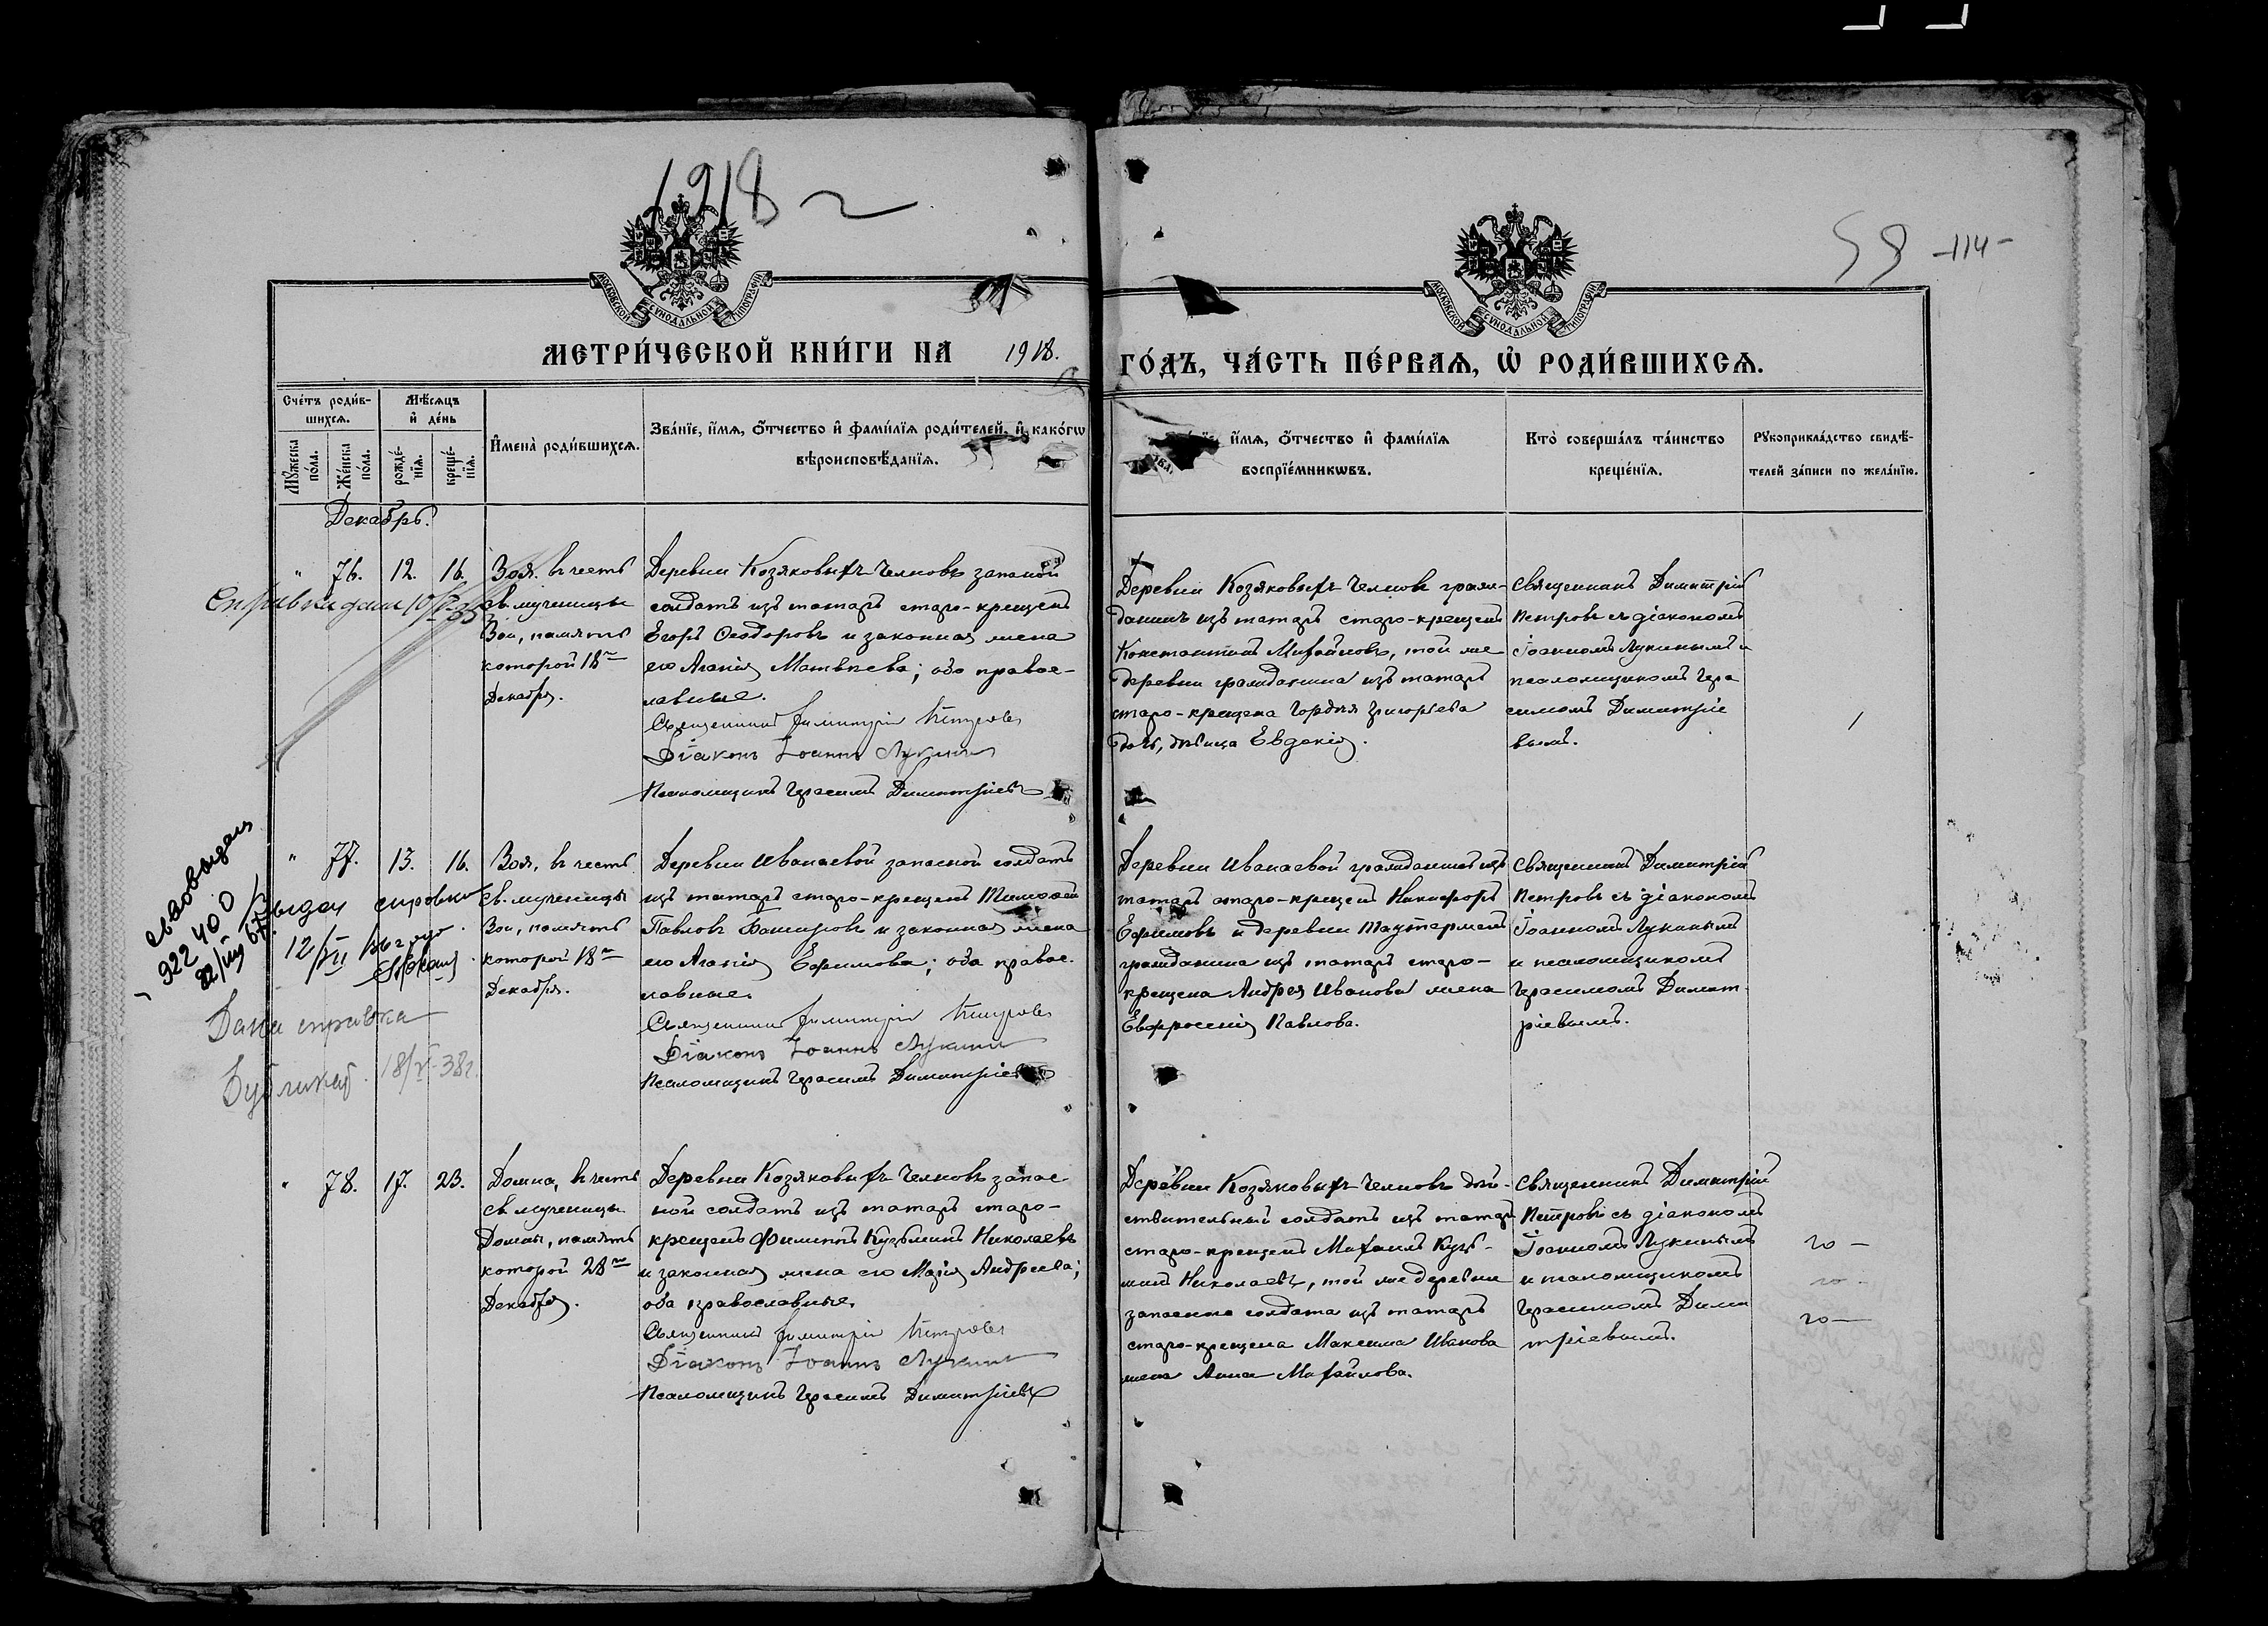 1918 г
58 -114-
МОСКОВСКОЙ СѴНОДАЛЬНОЙ ТИПОГРАФІИ
МОСКОВСКОЙ СѴНОДАЛЬНОЙ ТИПОГРАФІИ
МЕТРИ́ЧЕСКОЙ КНИ́ГИ НА 1918.
ГО́ДЪ, ЧА́СТЬ ПЕ́РВАѦ, Ѡ҆ РОДИ́ВШИХСѦ.
Сче́тъ роди́в-
шихсѧ.
Мꙋ́жеска по́ла.
Же́нска по́ла.
Мѣ́сѧцъ
и҆ де́нь
рожде́-
нїѧ.
креще́-
нїѧ.
И҆мена̀ роди́вшихсѧ.
Зва́нїе, и҆́мѧ, ѻ҆́тчество и҆ фами́лїѧ роди́телей, и҆ како́гѡ
вѣроисповѣ́данїѧ.
и҆́мѧ, ѻ҆́тчество и҆ фами́лїѧ
воспрїе́мникѡвъ.
Кто̀ соверша́лъ та́инство
креще́нїѧ.
Рꙋкоприкла́дство свидѣ́-
телей за́писи по жела́нїю.
Декабрь.
" 76. 12. 16.
Зоя. въ честь
св. мученицы
Зои, память
которой 18го
Декабря.
Деревни Козяковыхъ Челновъ запасной
солдатъ изъ татаръ старо-крещенъ
Егоръ Ѳеодоровъ и законная жена
его Агапія Матвѣева; оба правос-
лавные.
Священникъ Димитрій Петровъ
Діаконъ Іоаннъ Лукинъ
Псаломщикъ Герасимъ Димитріевъ
Деревни Козяковыхъ Челновъ граж-
данинъ изъ татаръ старо-крещенъ
Константинъ Михайловъ, той же
деревни гражданина изъ татаръ
старо-крещена Гордѣя Григорьева
дочь, дѣвица Евдокія.
Священникъ Димитрій
Петровъ съ діакономъ
Іоанномъ Лукинымъ и
псаломщикомъ Гера
симомъ Димитріе
вымъ.
" 77. 13. 16.
Зоя, въ честь
св. мученицы
Зои, память
которой 18го
Декабря.
Деревни Иванаевой запасной солдатъ
изъ татаръ старо-крещенъ Тимоѳей
Павловъ Башировъ и законная жена
его Агапія Ефимова; оба правос-
лавные.
Священникъ Димитрій Петровъ
Діаконъ Іоаннъ Лукинъ
Псаломщикъ Герасимъ Димитріевъ
Деревни Иванаевой гражданинъ изъ
татаръ старо-крещенъ Никифоръ
Ефимовъ и деревни Таутерменъ
гражданина изъ татаръ старо-
крещена Андрея Иванова жена
Евфросинія Павлова.
Священникъ Димитрій
Петровъ съ діакономъ
Іоанномъ Лукинымъ
и псаломщикомъ
Герасимомъ Димит-
ріевымъ.
Дана справка
18/V-38г.
" 78. 17. 23.
Домна, въ честь
св. мученицы
Домны, память
которой 28го
Декабря.
Деревни Козяковыхъ Челновъ запас
ной солдатъ изъ татаръ старо-
крещенъ Филиппъ Кузьминъ Николаевъ
и законная жена его Марія Андреева;
оба православные.
Священникъ Димитрій Петровъ
Діаконъ Іоаннъ Лукинъ
Псаломщикъ Герасимъ Димитріевъ
Деревни Козяковыхъ Челновъ дѣй-
ствительный солдатъ изъ татаръ
старо-крещенъ Михаилъ Кузь-
минъ Николаевъ, той же деревни
запаснаго солдата изъ татаръ
старо-крещена Максима Иванова
жена Анна Михайлова.
Священникъ Димитрій
Петровъ съ діакономъ
Іоанномъ Лукинымъ
и псаломщикомъ
Герасимомъ Дими
тріевымъ.